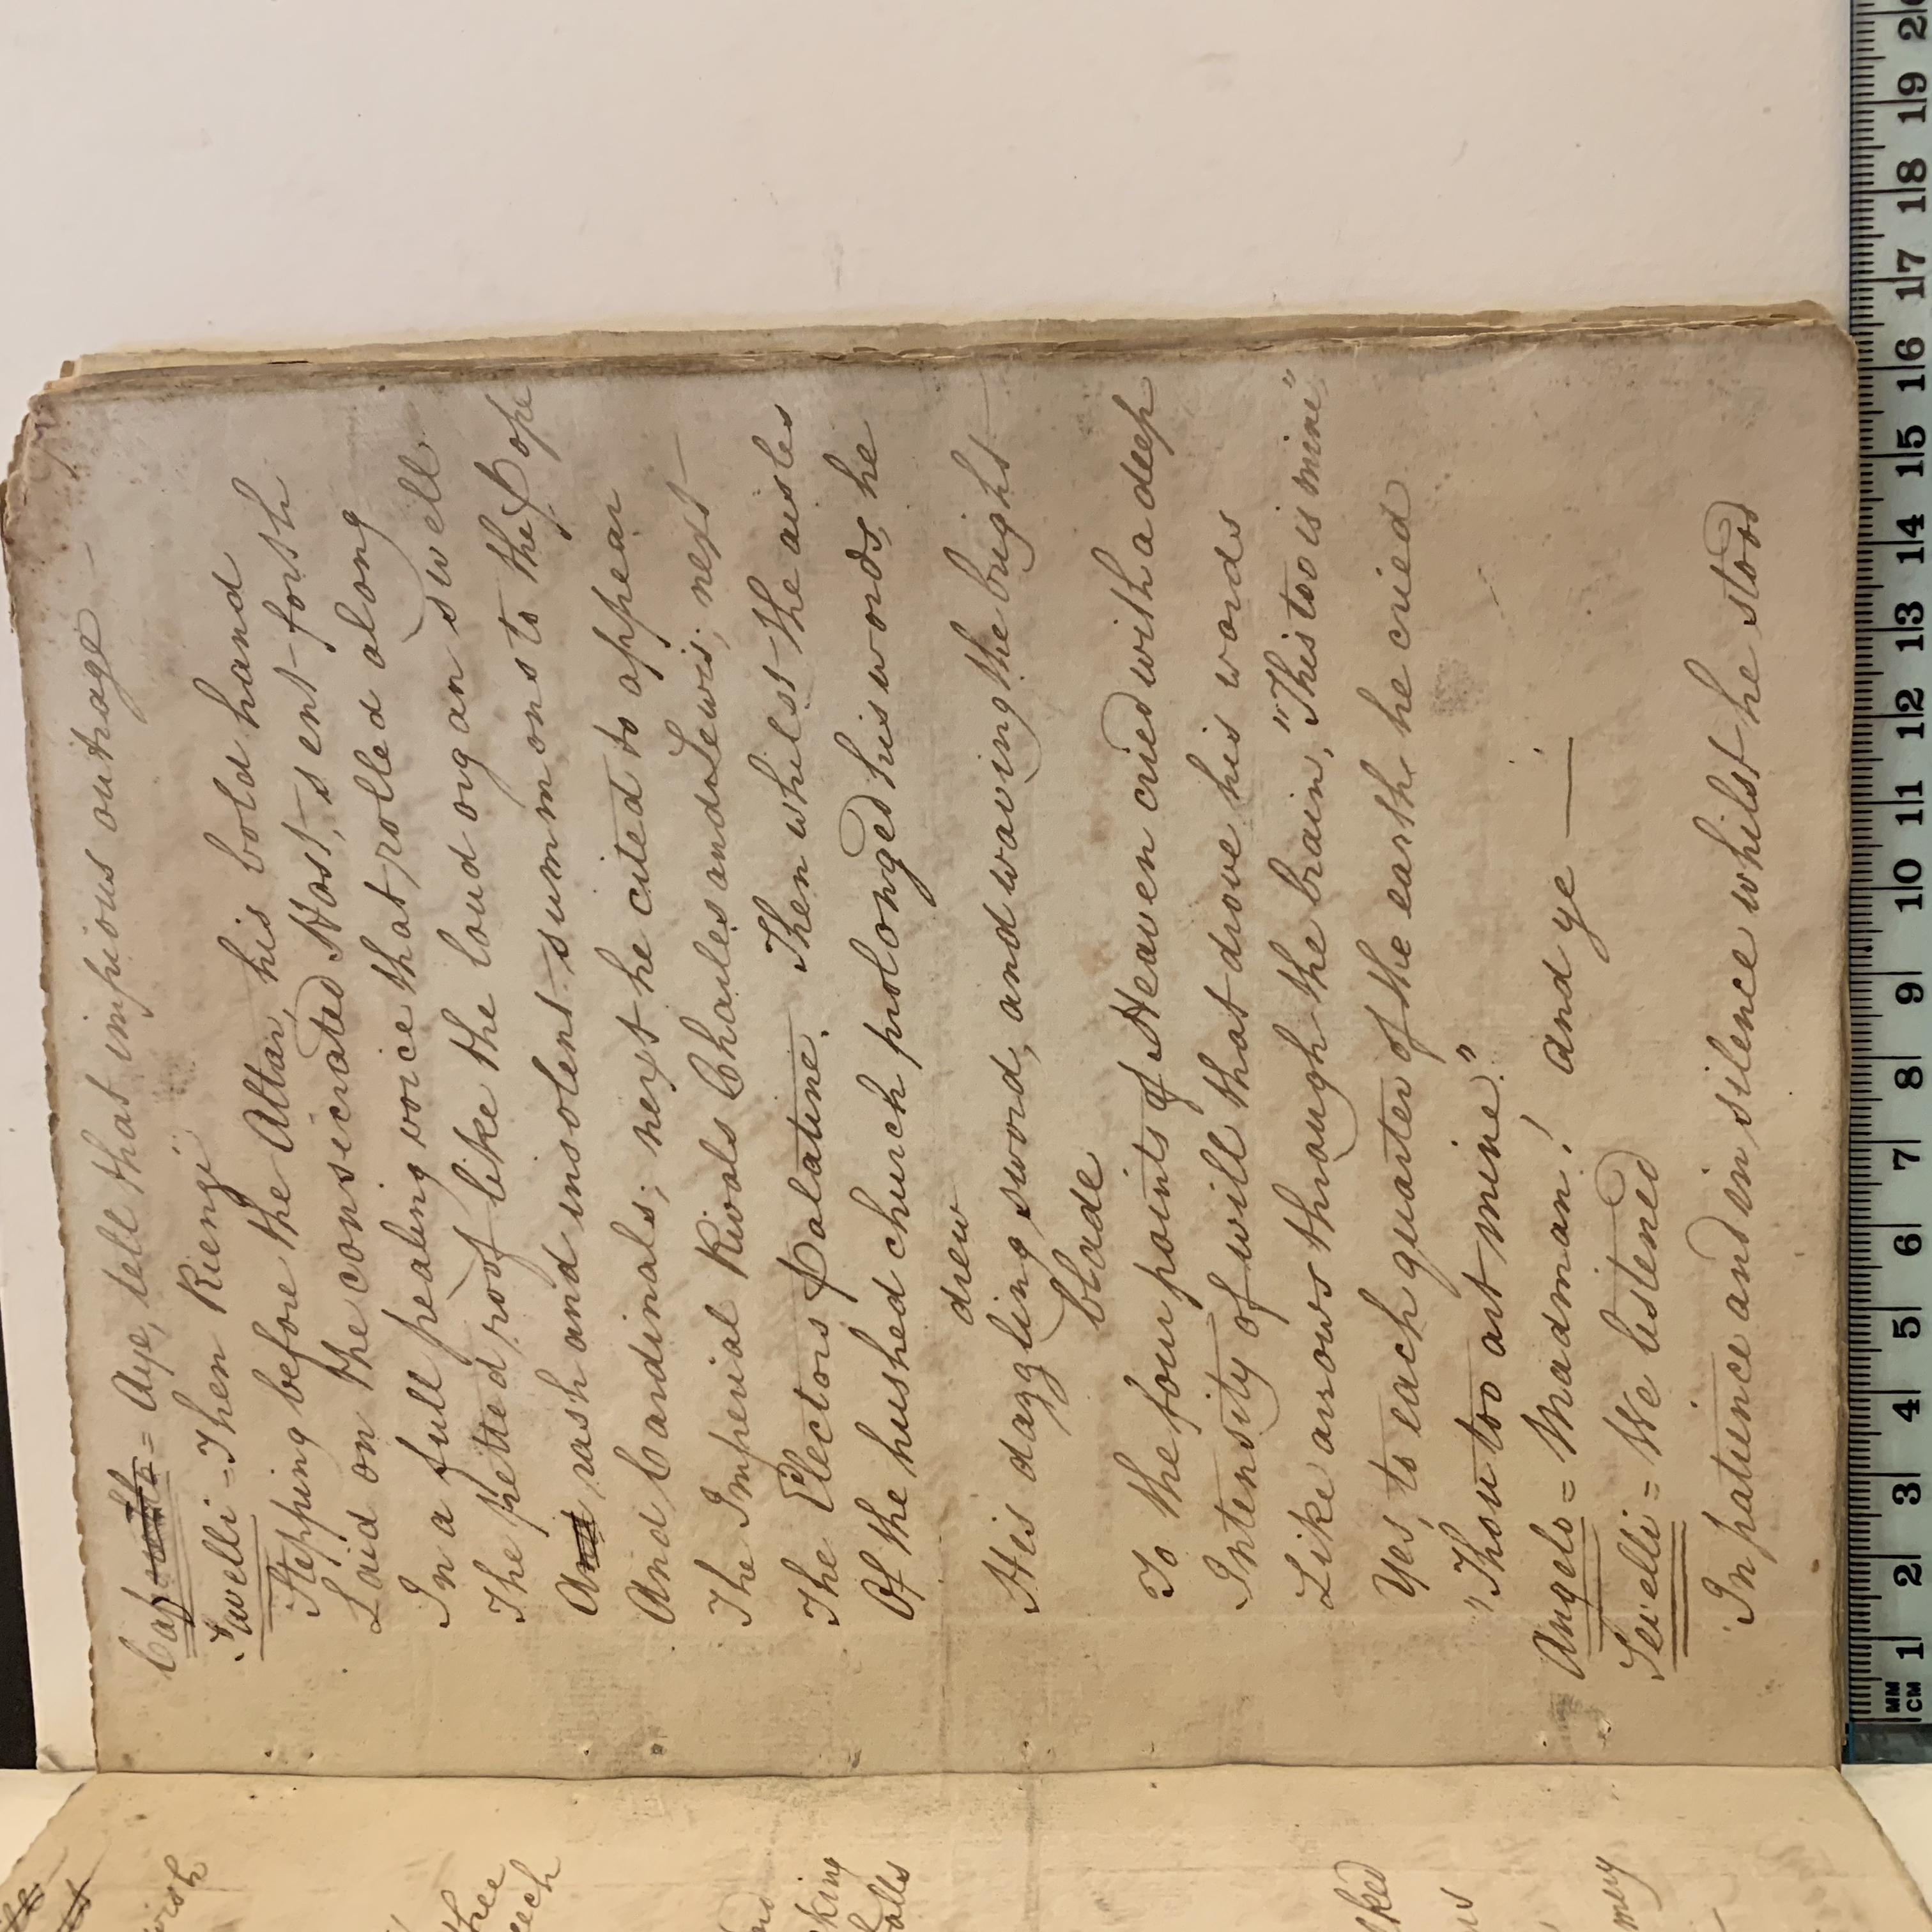 Cap = Aye, tell that impious outrage
Savelli = Then Rienzi
Stepping before the Altar, his bold hand
Laid on the consicrated Host, sent forth
In a full pealing voice that rolled along
The petted roof like the loud organ swell
A rash and insolent summons to the Pope
And Cardinals; next he cited to appear
The Imperial Rivals Charles and Lewis; next
The Electors Palatine. Then whilst the aisles
Of the hushed church prolonged his words, he
drew
His dazzling sword, and waving the bright
blade
To the four points of Heaven cried with a deep
Intensity of will that drove his words
Like arrows through the brain, "This too is mine"
Yes, to each quarter of the earth he cried
"Thou too art mine."
Angelo = Madman! and ye —
Sevelli = We listened
In patience and in silence whilst he stood
wish
thee
eech
king
alls
ked
mery
MM
CM 1 2 3 4 5 6 7 8 9 10 11 12 13 14 15 16 17 18 19 2